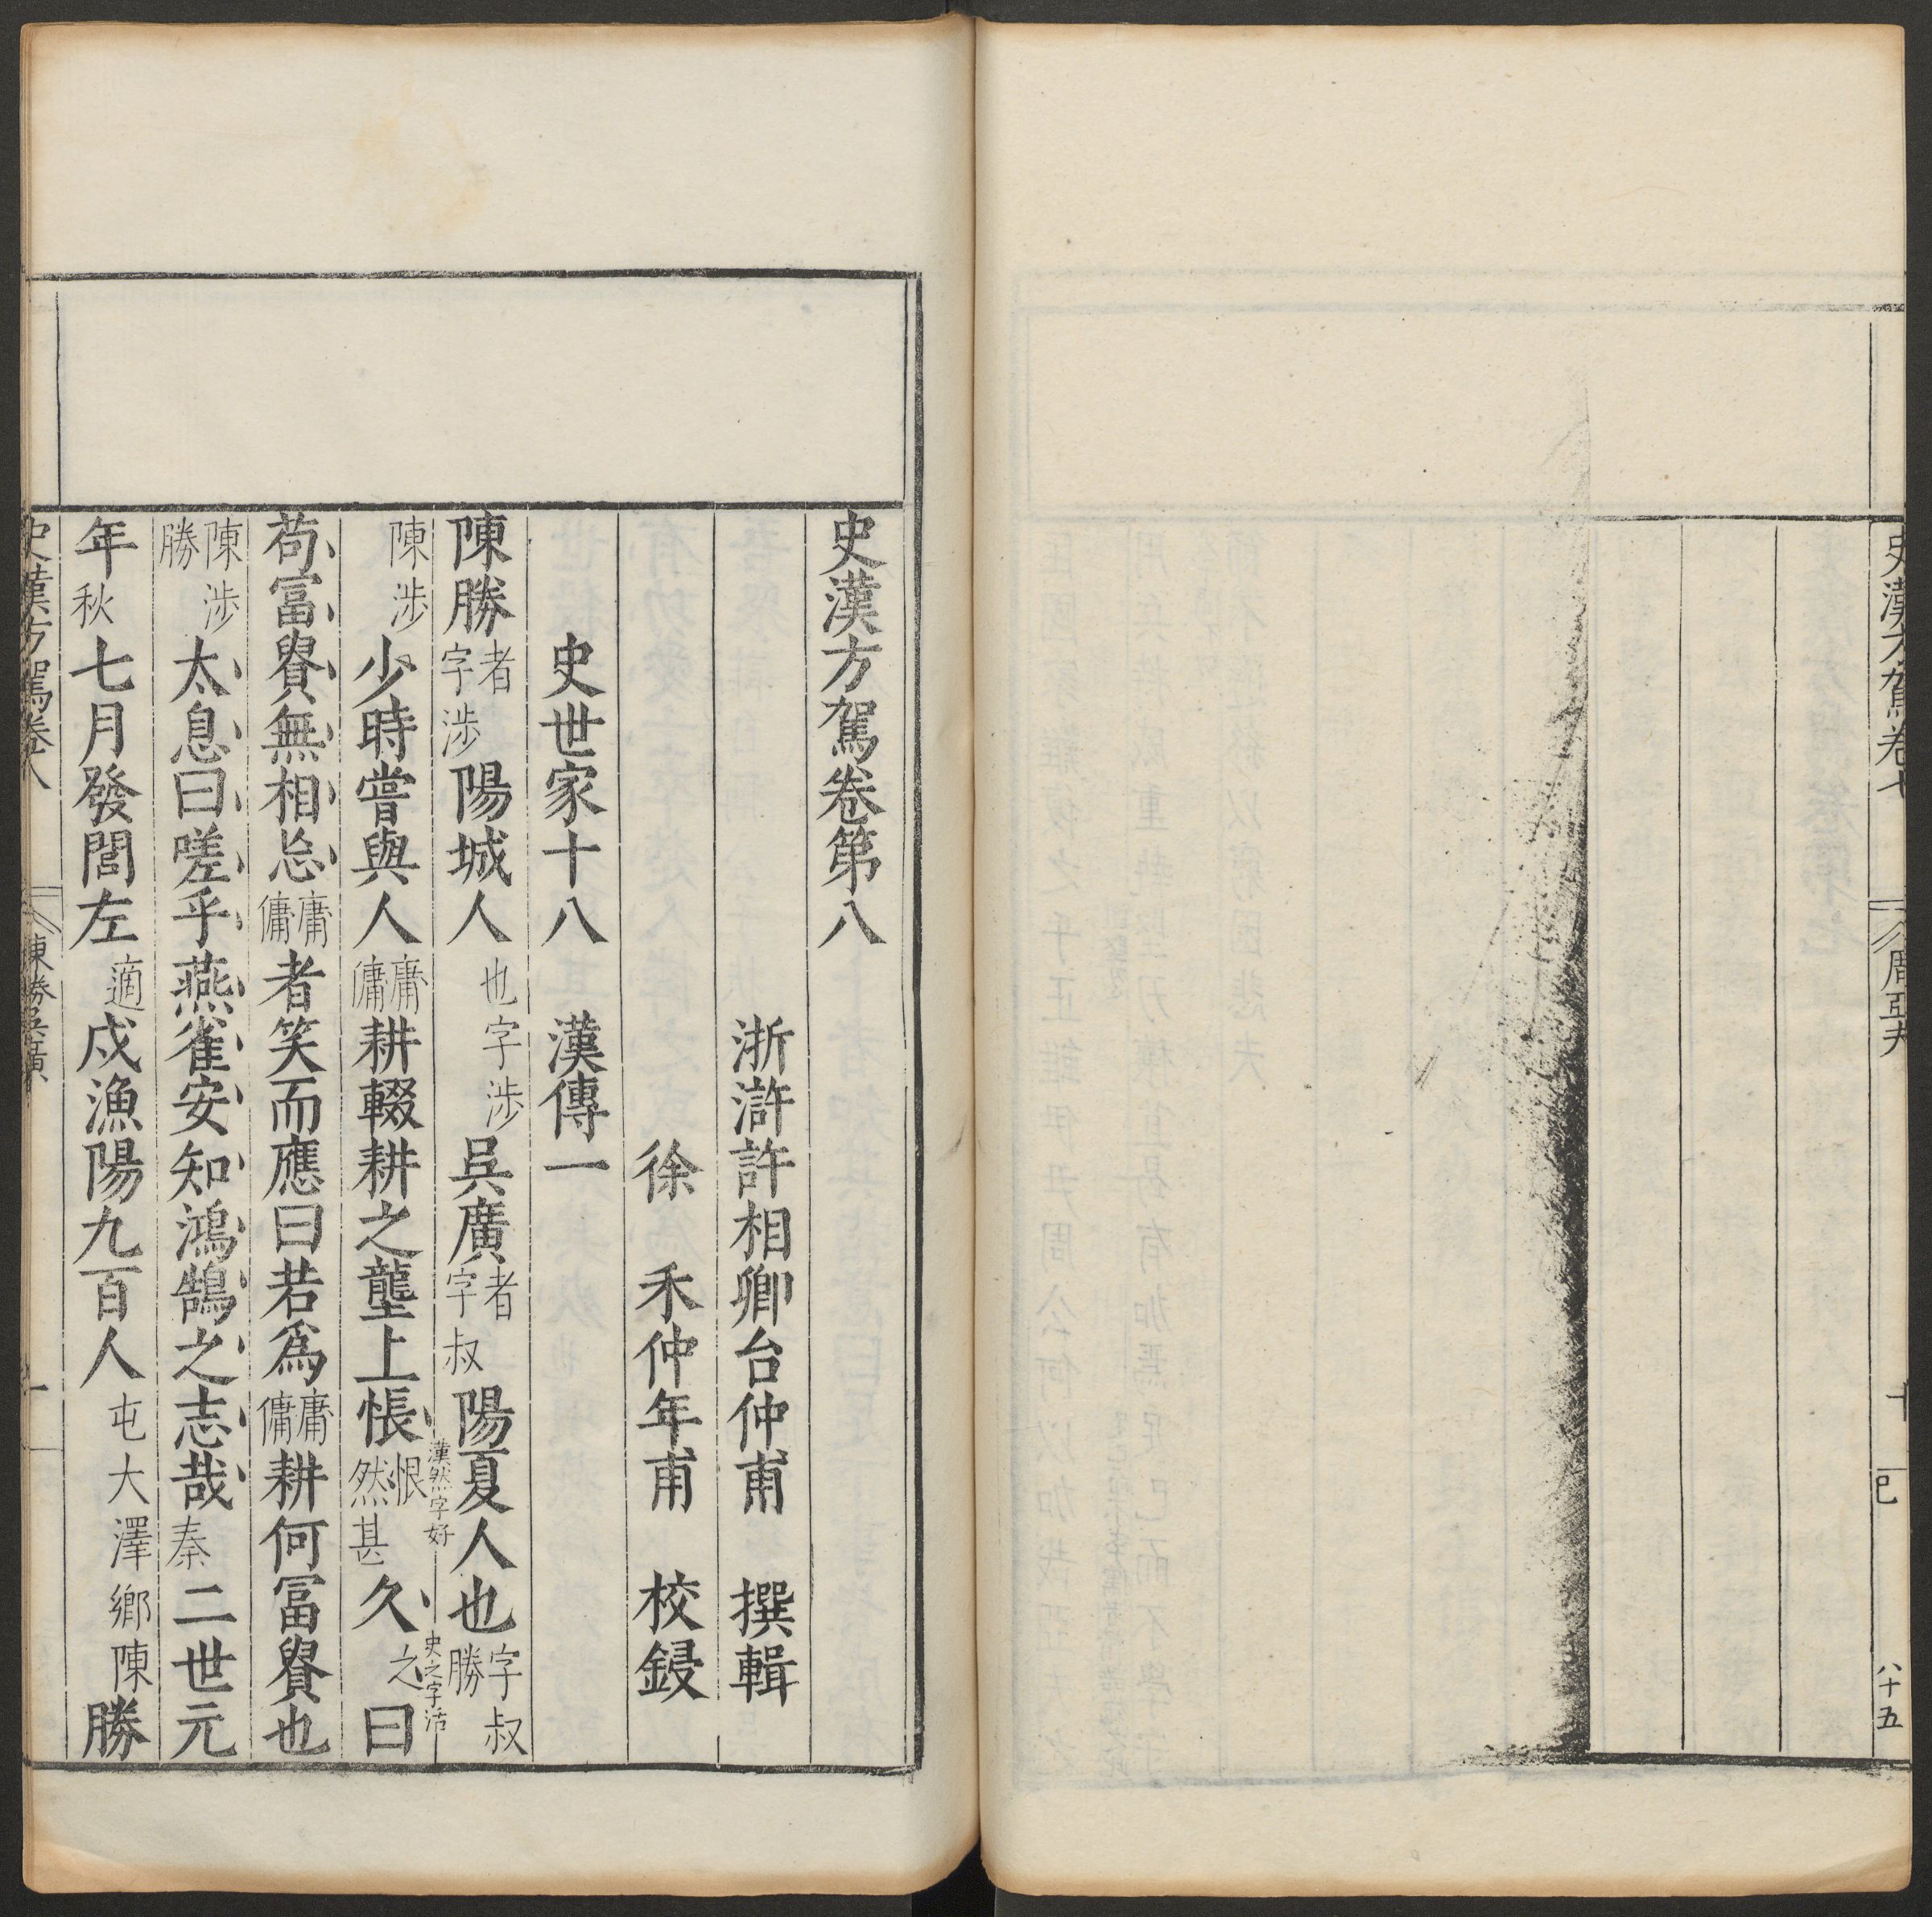 史漢方駕卷七
周亞夫
十
八十五
史漢方駕卷第八
浙滸許相卿台仲甫 撰輯
徐 禾仲年甫 校鋟
史世家十八 漢傳一
陳勝者字涉陽城人也字涉吳廣者字叔陽夏人也字叔勝
陳涉少時嘗與人庸傭耕輟耕之壟上悵恨然甚久之曰
漢然字好
史之字活
苟富貴無相忘庸傭者笑而應曰若爲庸傭耕何富貴也
陳涉勝太息曰嗟乎燕雀安知鴻鵠之志哉秦二世元
年秋七月發閭左適戍漁陽九百人屯大澤鄉陳勝
史漢方駕卷八
陳勝吳廣
一